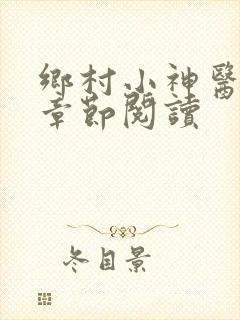 鄉村小神醫
章節閱讀
冬目景